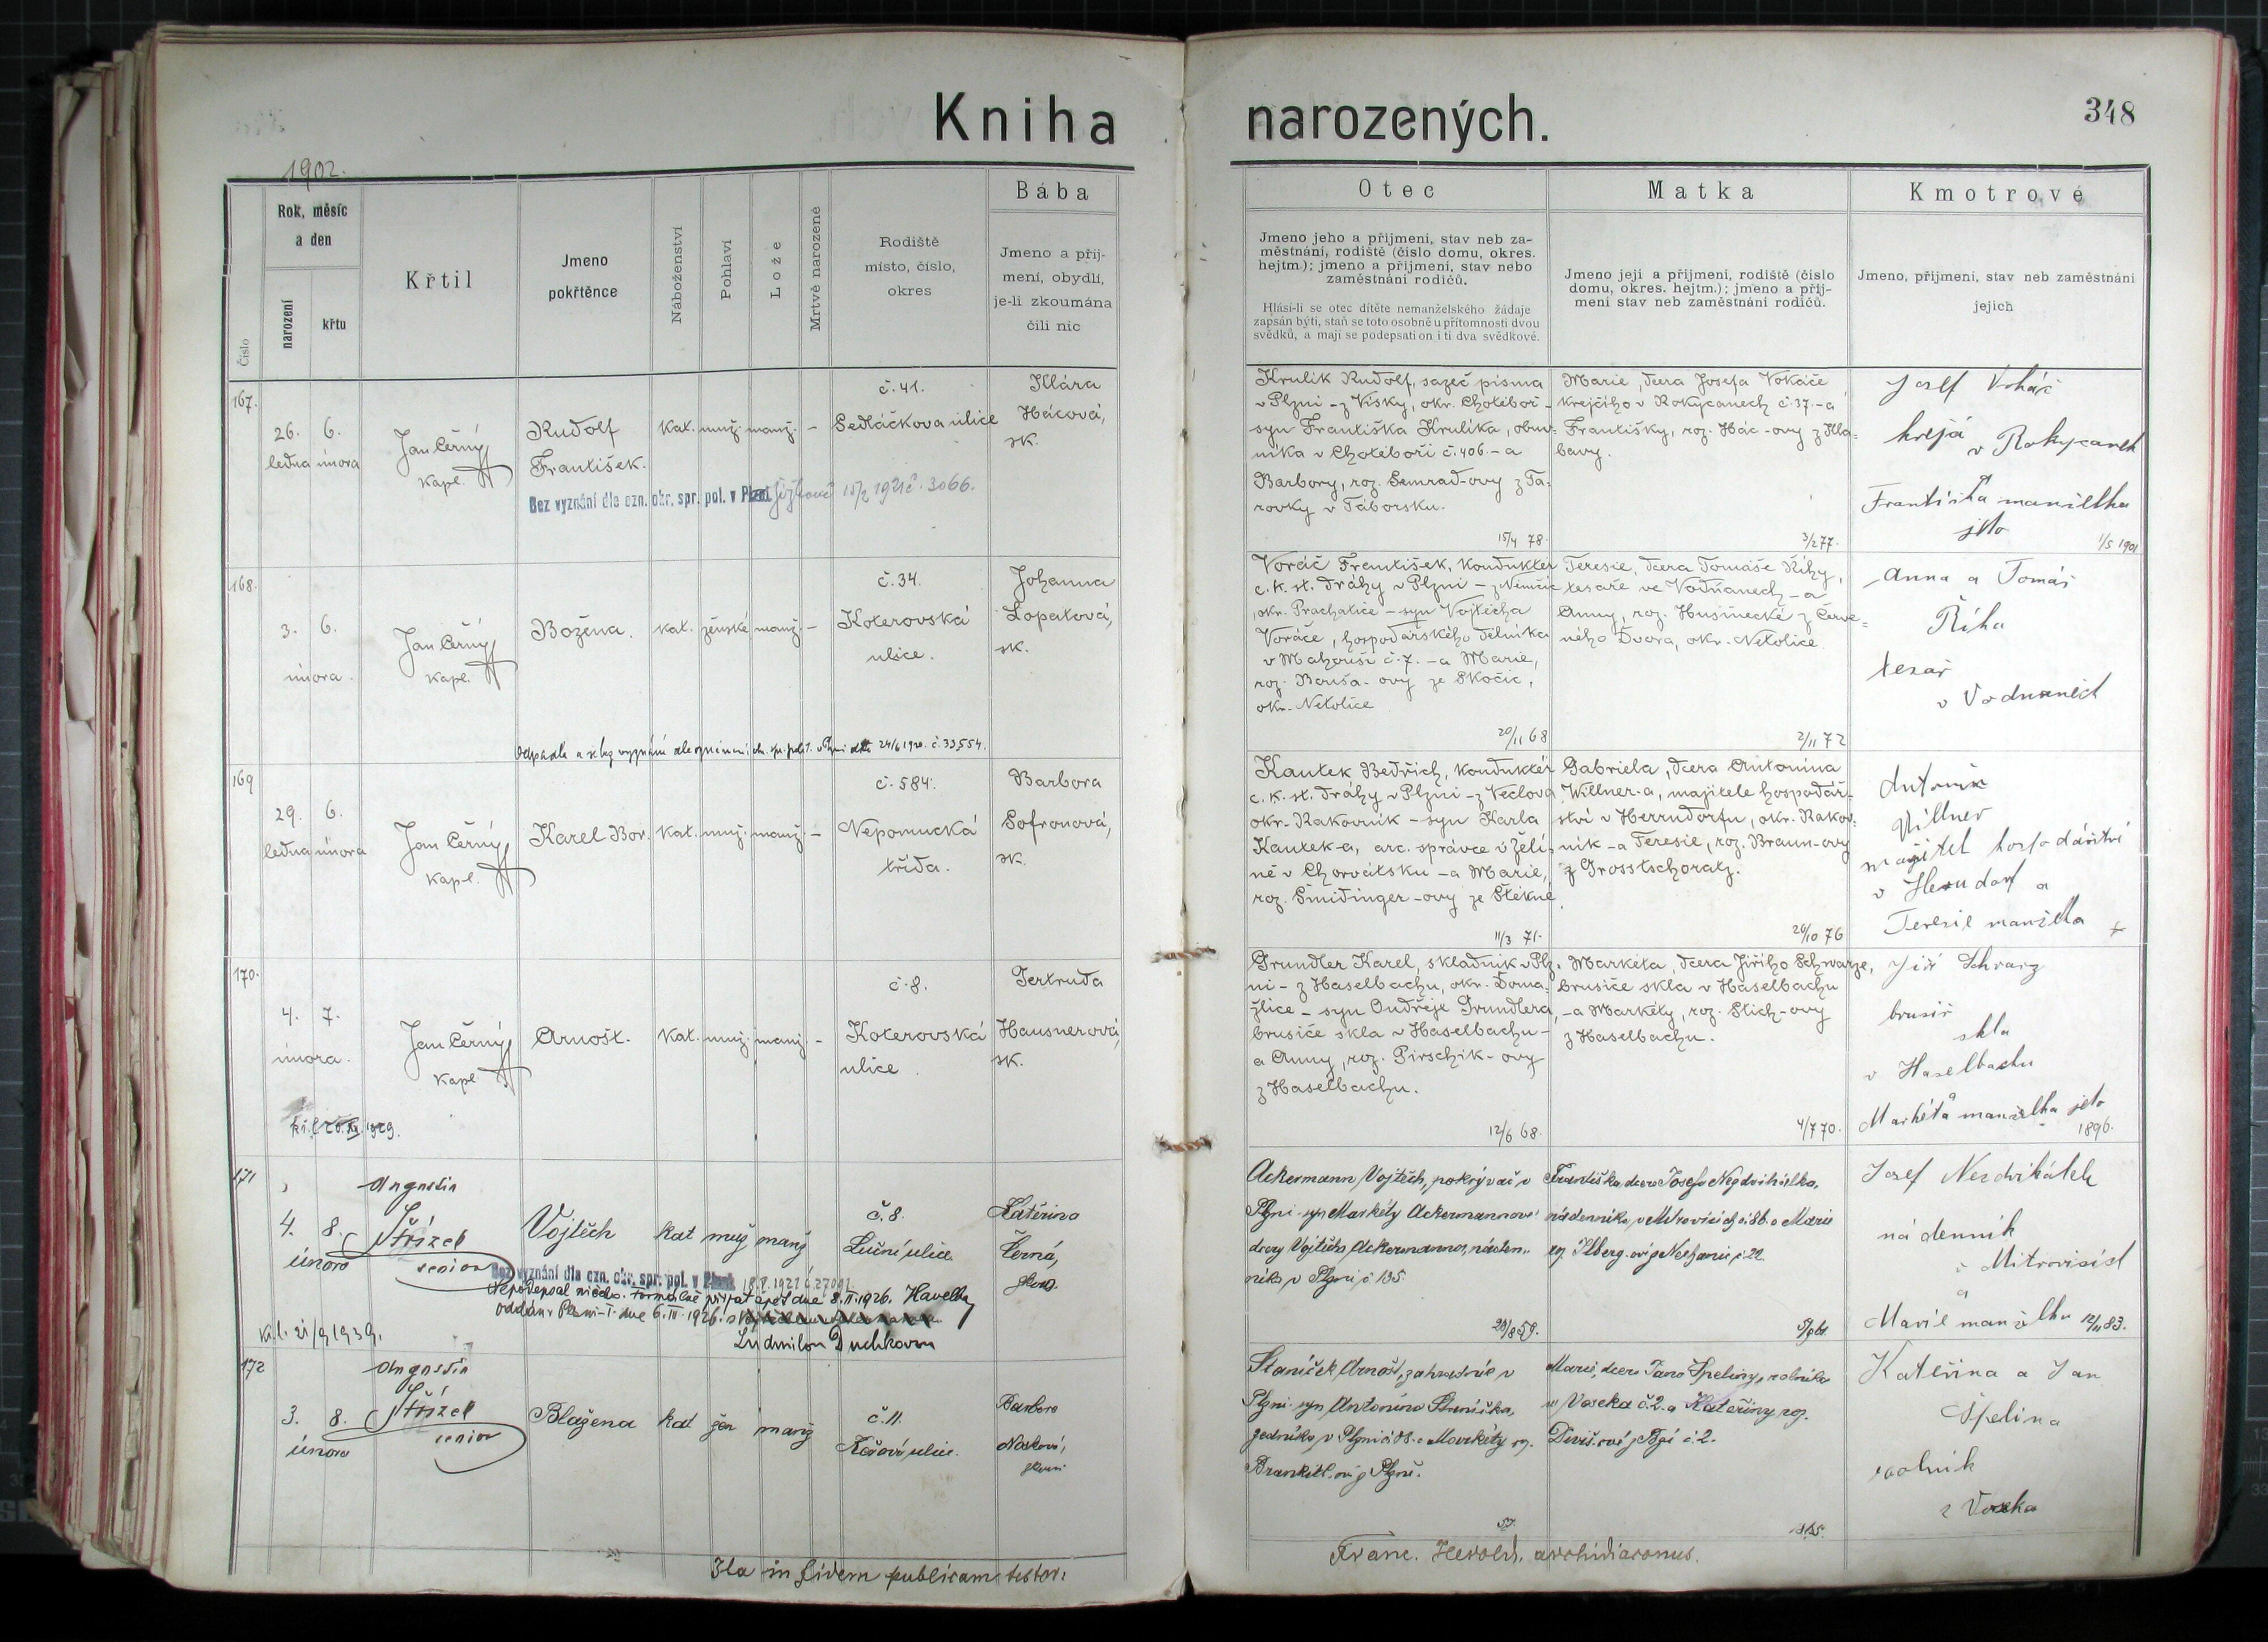 Kniha narozených.
348
1902.
Číslo
Rok, měsíc
a den
narození
křtu
Křtil
Jmeno
pokřtěnce
Náboženství
Pohlaví
Lože
Mrtvě narozené
Rodiště
místo, číslo,
okres
Bába
Jmeno a příj-
mení, obydlí,
je-li zkoumána
čili nic
Otec
Jmeno jeho a příjmení, stav neb za-
městnání, rodiště (číslo domu, okres.
hejtm.); jmeno a příjmení, stav nebo
zaměstnání rodičů.
Hlásí-li se otec dítěte nemanželského žádaje
zapsán býti, staň se toto osobně u přítomnosti dvou
svědků, a mají se podepsati on i ti dva svědkové.
Matka
Jmeno její a příjmení, rodiště (číslo
domu, okres. hejtm.); jmeno a příj-
mení stav neb zaměstnání rodičů.
Kmotrové
Jmeno, příjmení, stav neb zaměstnání
jejich
167.
26.
ledna
6.
února
Jan Černý
kapl.
Rudolf
František.
kat.
muž.
manž.
–
č. 41.
Sedláčkova ulice
Klára
Hácová,
zk.
Bez vyznání dle ozn. okr. spr. pol. v
1921 č. 3066.
Krulik Rudolf, sazeč písma
v Plzni – z Vísky, okr. Chotěboř –
syn Františka Krulíka, obuv-
níka v Chotěboři č. 406. – a
Barbory, roz. Semrad-ovy z Ta-
rovky v Táborsku.
15/4 78.
Marie, dcera Josefa Vokáče
krejčího v Rokycanech č. 37. – a
Františky, roz. Hác-ovy z Hla-
bavy.
3/2 77.
Josef Vokáč
krejčí
v Rokycanech
a
Františka manželka
jeho
1/5 1901
168.
3.
února.
6.
Jan Černý
kapl.
Božena.
kat.
ženské
manž.
–
č. 34.
Koterovská
ulice.
Johanna
Lopatová,
zk.
24/6 1920. č. 33554.
Voráč František, konduktér
c. k. st. dráhy v Plzni – z Němčic
okr. Prachatice – syn Vojtěcha
Voráče, hospodářského dělníka
v Mahouši č. 7. – a Marie,
roz. Bouša-ovy ze Skočic,
okr. Netolice
20/11 68
Teresie, dcera Tomáše Říhy,
tesaře ve Vodňanech – a
Anny, roz. Husinecké z Červe-
ného Dvora, okr. Netolice
2/11 72
Anna a Tomáš
Říha
tesař
v Vodnanech
169
29.
ledna
6.
února
Jan Černý
kapl.
Karel Bor.
kat.
muž.
manž.
–
č. 584.
Nepomucká
třída.
Barbora
Sofronová,
zk.
Kautek Bedřich, konduktér
c. k. st. dráhy v Plzni – z Večlova
okr. Rakovník – syn Karla
Kautek-a, arc. správce v Želi-
ně v Chorvátsku – a Marie,
roz. Šmidinger-ovy ze Štěkně.
11/3 71.
Gabriela, dcera Antonína
Willner-a, majitele hospodář-
ství v Herrndorfu, okr. Rakov-
ník – a Teresie, roz. Braun-ovy
z Grosstschoratz.
20/10 76
Antonín
Villner
majitel hospodářství
v Herndorf a
Teresie manželka
170.
4.
února.
7.
Jan Černý
kapl.
Arnošt.
kat.
muž.
manž.
–
č. 8.
Koterovská
ulice
Gertruda
Hausnerová,
zk.
Grundler Karel, skladník v Plz-
ni – z Haselbachu, okr. Doma-
žlice – syn Ondřeje Grundlera,
brusiče skla v Haselbachu –
a Anny, roz. Pirschik-ovy
z Haselbachu.
12/6 68.
Markéta, dcera Jiřího Schwarze,
brusiče skla v Haselbachu
– a Markéty, roz. Stich-ovy
z Haselbachu.
4/7 70.
Jiří Schwarz
brusič
skla
v Haselbachu
a
Markéta manželka jeho
1896.
171
4.
února
8.
Augustin
Střízel
senior
Vojtěch
kat
muž
manž
č. 8.
Luční ulice
Kateřina
Černá,
zkouš.
Bez vyznání dle ozn. okr. spr. pol. v
dne 8. II. 1926. Havelka
oddán v Plzni-I. dne 6. III. 1926. s
Ludmilou Duchkovou
21/9 1939.
Ackermann Vojtěch, pokrývač v
Plzni syn Markéty Ackermannové
dcery Vojtěcha Ackermanna, náden-
níka v Plzni č 135.
Františka, dcera Josefa Nezdvihálka,
nádenníka v Mitrovicích č. 86. a Marie
Josef Nezdvihálek
nádenník
v Mitrovicích
a
Marie manželka 12/11 83.
172
3.
února
8.
Augustin
Střízel
senior
Blažena
kat
žen
manž
č. 11.
ulice.
Barbora
Nosková,
zkouš
Staníček Arnošt, zahradník v
Plzni syn Antonína Staníčka,
zedníka v Plzni a Markéty roz.
Marie, dcera Jana Špeliny, rolníka
u Voseka č. 2. a Kateřiny roz.
Kateřina a Jan
Špelina
rolník
z Voseka
Ita in fidem publicam testor:
Franc. Herold, archidiaconus.